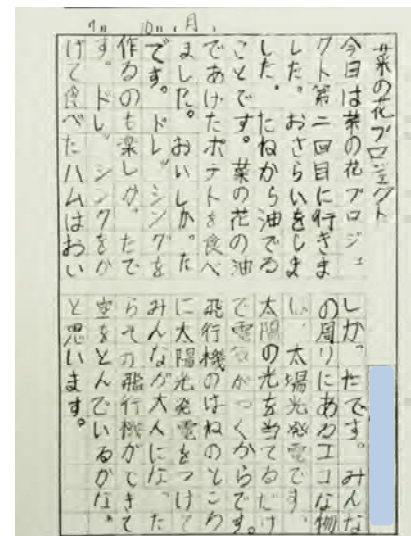 9月 10日(月)
菜の花プロジェクト
今日は菜の花プロジェ
クト第二回目に行きま
した。おさらいをしま
した。たねから油でる
ことです。菜の花の油
であげたポテトを食べ
ました。おいしかった
です。ドレッシングを
作るのも楽しかったで
す。ドレッシングをか
けて食べたハムはおい
しかったです。みんな
の周りにあるエコな物
は、太場光発電です。
太陽の光を当てるだけ
で電気がつくからです。
飛行機のはねのところ
に太陽光発電をつけて
みんなが大人になった
らその飛行機ができて
空をとんでいるかな。
と思います。